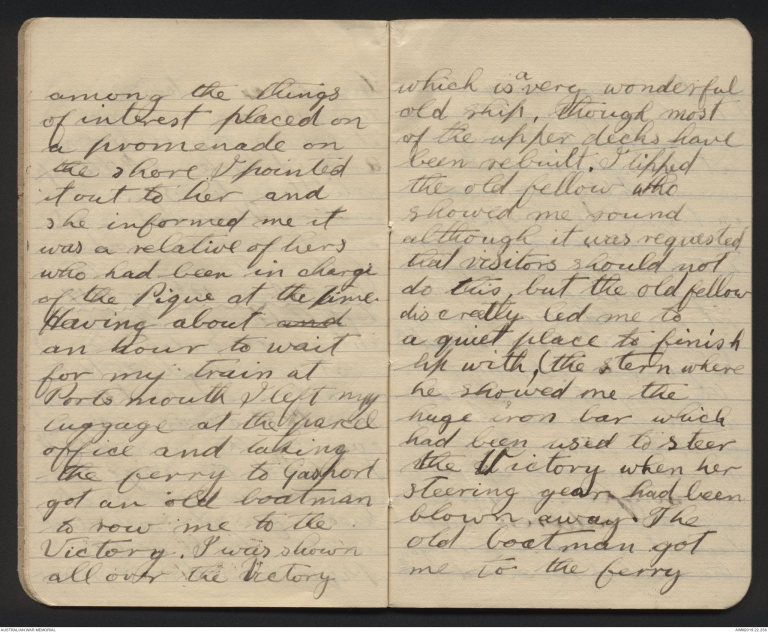 among the things
of interest placed on
a promenade on
the shore I pointed
it out to her and
she informed me it
was a relative of hers
who had been in charge
of the Pique at the time.
Having about and
an hour to wait
for my train at
Portsmouth I left my
luggage at the parcel
office and taking
the ferry to Gosport
got an old boatman
to row me to the
Victory. I was shown
all over the Victory
which is a very wonderful
old ship, though most
of the upper decks have
been rebuilt. I tipped
the old fellow who
showed me round
although it was requested
that visitors should not
do this, but the old fellow
discreatly led me to
a quiet place to finish
up with, (the stern where
he showed me the
huge iron bar which
had been used to steer
the Victory when her
steering gear had been
blown away. The
old boatman got
me to the ferry
AUSTRALIAN WAR MEMORIAL